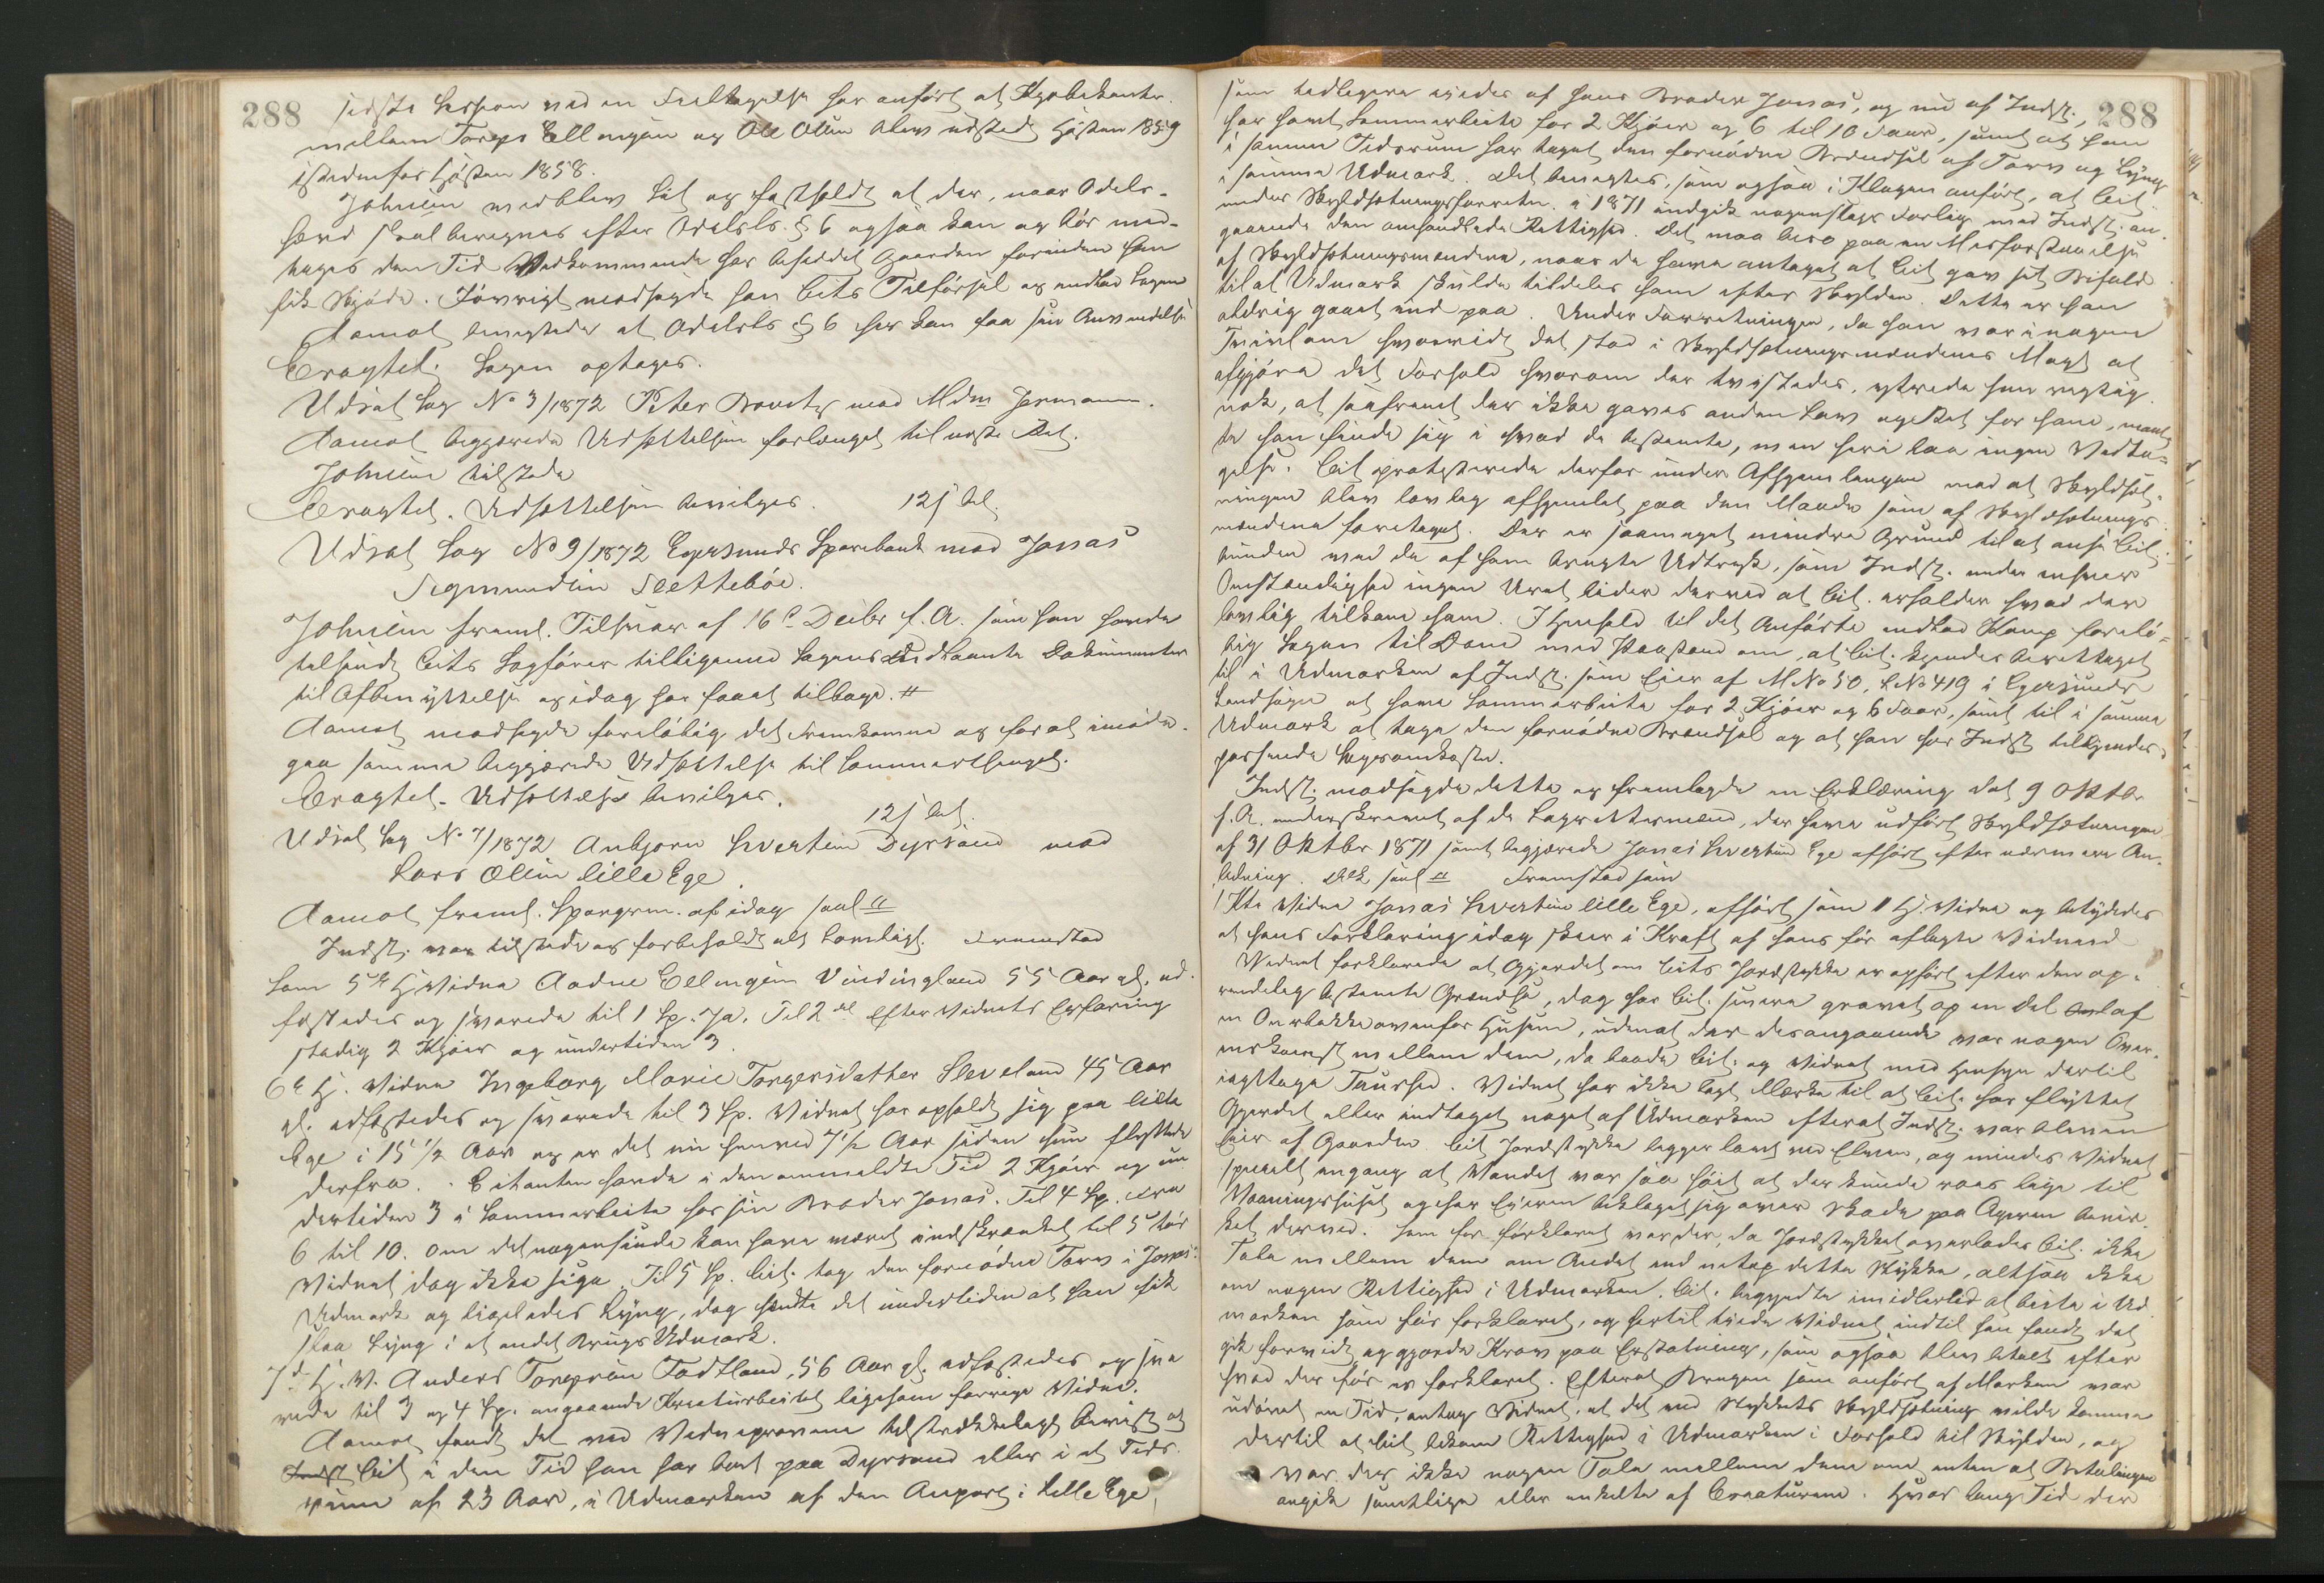 288
sidste Session ved en Feiltagelse har anført at Kjøbekontr.
mellem Torger Ellingsen og Ole Olsen blev udstedt Høsten 1859
istedenfor Høsten 1858.
Johnsen vedblev Sit og fastholdt at der, naar Odels-
hævd skal beregnes efter Odelsls. § 6 ogsaa kan og bør med-
tages den Tid Vedkommende har besiddet Gaarden forinden han
fik Skjøde. Iøvrigt modsagde han Cits Tilførsel og indlod Sagen
Aamot benegtede at Odelsls § 6 her kan faa sin Anvendelse
Eragtet: Sagen optages.
Udsat Sag No 3/1872 Peter mod Mdm Jermann.
Aamot begjærede Udsættelsen forlænget til næste Ret.
Johnsen tilstede
Eragtet. Udsættelsen bevilges. 12 s bet.
Udsat Sag No 9/1872 Egersunds Sparebank mod Jonas
Sigmundsen Slettebøe.
Johnsen freml. Tilsvar af 16 Decbr f. A. som han havde
tilsendt Cits Sagfører tilligemed Sagens Dokumenter
til Afbenyttelse og idag har faaet tilbage.
Aamot modsagde foreløbig det Fremkomne og for at imøde-
gaa samme begjærede Udsættelse til Sommerthinget.
Eragtet. Udsættelse bevilges.
12 s bet.
Udsat Sag No 7/1872 Anbjørn Sivertsen Dyrsand mod
Lars Olsen lille Ege
Aamot freml. Spørgsm. af idag saal
Indst. var tilstede og forbeholdt alt Lovligt. Fremstod
Som 5te H. Vidne Aadne Ellingsen Vindingland 55 Aar gl. ed-
fæstedes og svarede til 1 Sp. Ja. Til 2 det Efter Vidnets Erfaring
stadig 2 Kjøer og undertiden 3.
6te H. Vidne Ingeborg Marie Torgersdatter Sleveland 45 Aar
gl. edfæstedes og svarede til 3 Sp. Vidnet har opholdt sig paa lille
Ege i 15 1/2 Aar og er det nu henved 7 1/2 Aar siden hun flyttede
derfra. Citanten havde i den ommeldte Tid 2 Kjøer og un-
dertiden 3 i Sommerbeite hos sin Broder Jonas. Til 4 Sp. Fra
6 til 10. Om det nogensinde kan have været indskrænket til 5 tør
Vidnet dog ikke sige. Til 5 Sp. Cit. tog den fornødne Torv i Jonas's
Udmark og ligeledes Lyng, dog hændte det undertiden at han fik
slaa Lyng i et andet Brugs Udmark.
7de H. V. Anders Torgersen Todtland, 56 Aar gl. edfæstedes og sva-
rede til 3 og 4 Sp. angaaende Kreaturbeitet ligesom forrige Vidne.
Aamot fandt det ved Vidneprovene tilstrækkeligt bevist at
Cit i den Tid han har boet paa Dyrsand eller i et Tids-
rum af 23 Aar, i Udmarken af den Anpart i lille Ege,
288
som tidligere eiedes af hans Broder Jonas, og nu af Indst.,
har havt Sommerbeite for 2 Kjøer og 6 til 10 Faar, samt at han
i samme Tidsrum har taget den fornødne Brændsel af Torv og Lyng
i samme Udmark. Det benegtes, som ogsaa i Klagen anført, at Cit.
under Skyldsætningsforretn. i 1871 indgik nogenslags Forlig med Indst. an-
gaaende den omhandlede Rettighed. Det maa bero paa en Misforstaaelse
af Skyldsætningsmændene, naar de have antaget at Cit gav sit Bifald
til at Udmark skulde tildeles ham efter Skylden. Dette er han
aldrig gaaet ind paa. Under Forretningen, da han var i nogen
Tvivl om hvorvidt det stod i Skyldsætningsmændenes Magt at
afgjøre det Forhold hvorom der tvistedes, ytrede han rigtig-
nok, at saafremt der ikke gaves anden Lov og Ret for ham, maat-
te han finde sig i hvad de bestemte, men heri laa ingen Vedta-
gelse. Cit protesterede derfor under Afhjemlingen mod at Skyldsæt-
ningen blev lovlig afhjemlet paa den Maade som af Skyldsætnings-
mændene foretaget. Der er saameget mindre Grund til at anse Cit.
bunden ved de af ham brugte Udtryk, som Indst. under enhver
Omstændighed ingen Uret lider derved at Cit. erholder hvad der
lovlig tilkom ham. I Henhold til det Anførte indlod Komp. foreløb-
ig Sagen til Dom med Paastand om, at Cit. kjendes berettiget
til i Udmarken af Indst. som Eier af M No 50, L No 419 i Egersunds
Landsogn at have Sommerbeite for 2 Kjøer og 6 Faar, samt til i samme
Udmark at tage den fornødne Brændsel og at han hos Indst tilkjendes
passende Sagsomkostn.
Indst. modsagde dette og fremlagde en Erklæring dat 9 Oktbr
f. A. underskrevet af de Lagrettesmænd, der have udført Skyldsætningen
af 31 Oktbr 1871 samt begjærede Jonas Sivertsen Ege afhørt efter nærmere An-
ledning. saal Fremstod som
1ste Vidne Jonas Sivertsen lille Ege, afhørt som 1 H. Vidne og betydedes
at hans Forklaring idag skeer i Kraft af hans før aflagte Vidneed
Vidnet forklarede at Gjerdet om Cits Jordstykke er opført efter den op-
rindelig bestemte Grændse, dog har Cit. senere gravet op en Del af
en Ourbakke ovenfor Husene, uden at der desangaaende var nogen Over-
enskomst mellem dem, da baade Cit. og Vidnet med Hensyn dertil
iagttoge Taushed. Vidnet har ikke lagt Mærke til at Cit. har flyttet
Gjerdet eller indtaget noget af Udmarken efterat Indst. var bleven
Eier af Gaarden. Cit Jordstykke ligger lavt ved Elven, og mindes Vidnet
specielt engang at Vandet var saa høit at der kunde roes lige til
Vaaningshuset og har Eieren beklaget sig over Skade paa Ageren bevir-
ket derved. Som før forklaret var der, da Jordstykket overlodes Cit. ikke
Tale mellem dem om Andet end netop dette Stykke, altsaa ikke
om nogen Rettighed i Udmarken. Cit. begyndte imidlertid at beite i Ud-
marken som før forklaret, og hertil taug Vidnet indtil han fandt det
gik forvidt og gjorde Krav paa Erstatning, som ogsaa blev betalt efter
hvad der før er forklaret. Efterat Brugen som anført af Marken var
udøvet en Tid, antog Vidnet, at det ved Stykkets Skyldsætning vilde komme
dertil at Cit bekom Rettighed i Udmarken i Forhold til Skylden, og
var der ikke nogen Tale mellem dem om enten at Betalingen
angik samtlige eller enkelte af Creaturene. Hvor lang Tid der